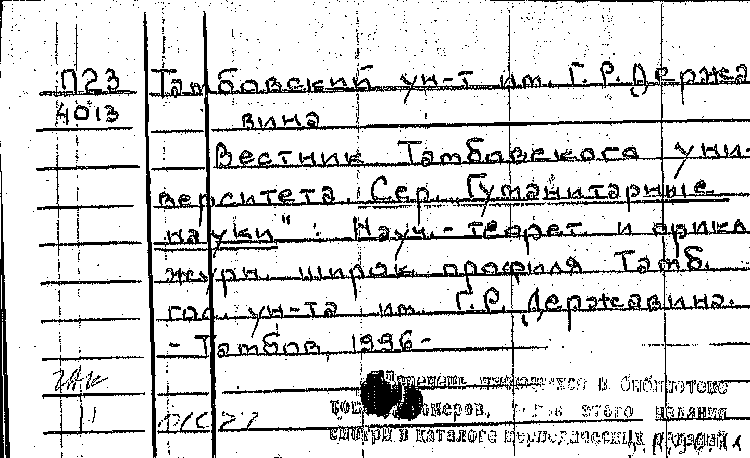 П23 Тамбовский ун-т им. Г. Р. Держа
4013 вина
Вестник Тамбовского уни-
верситета. Сер. Гуманитарные
науки" : Науч.-теорет и прикл
журн. широк. профиля Тамб.
гос. ун-та им. Г.Р. Державина.
- Тамбов, 1996-
Перечень имеющихся в библиотеке
номеров, этого издания
смотри в каталоге периодических изданий